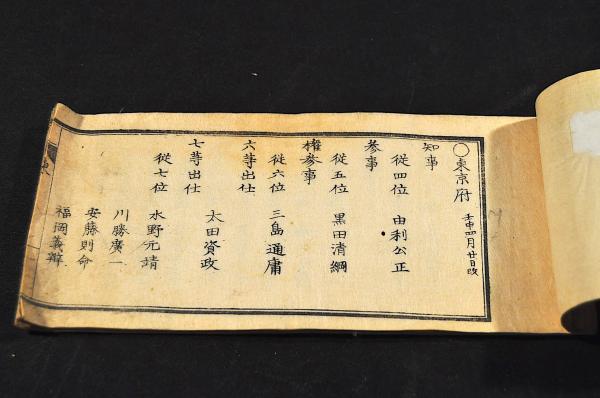 〇東京府 壬申四月廿日改
知事
従四位 由利公正
参事
従五位 黒田清綱
権参事
従六位 三島通庸
六等出仕
太田資政
七等出仕
従七位 水野元靖
川勝廣一
安藤則命
福岡義辯
東